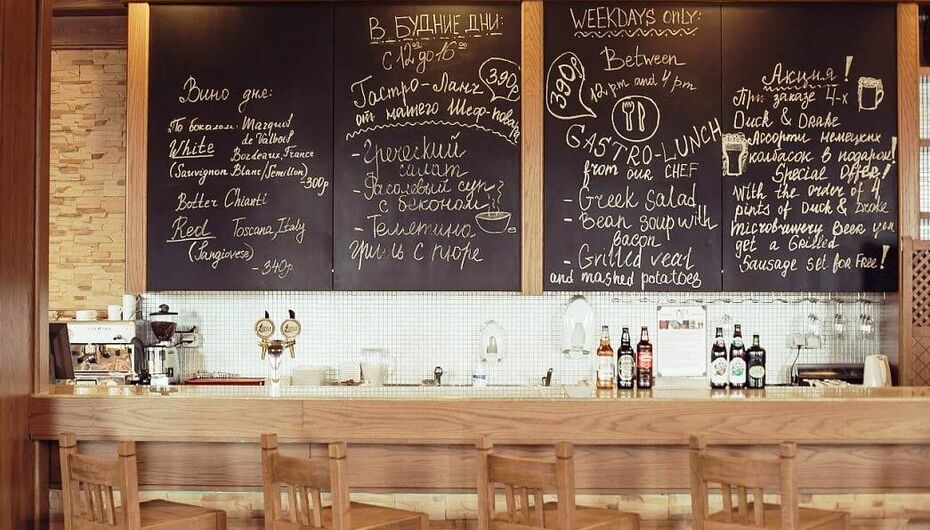 Вино дне:
По бокалам. Marquat
de Valbort
White Bordeaux, France
(Sauvignon Blanc/Semillon)
-300р
Botter Chianti
Red Toscana, Italy
(Sangiovese)
-340р
В БУДНИЕ ДНИ:
С 12⁰⁰ до 16⁰⁰
Гастро-Ланч
390р
от нашего Шеф-повара
- Греческий
салат
- Фасолевый суп
с беконом
- Телятина
гриль с пюре
WEEKDAYS ONLY:
Between
12 pm and 4 pm
390р
GASTRO-LUNCH
from our CHEF
- Greek Salad
- Bean soup with
bacon
- Grilled veal
and mashed potatoes
Акция!
При заказе 4-х
Duck & Drake
Ассорти немецких
колбасок в подарок!
Special Offer!
With the order of 4
pints of Duck & Drake
microbrewery Beer you
get a Grilled
Sausage set for Free!